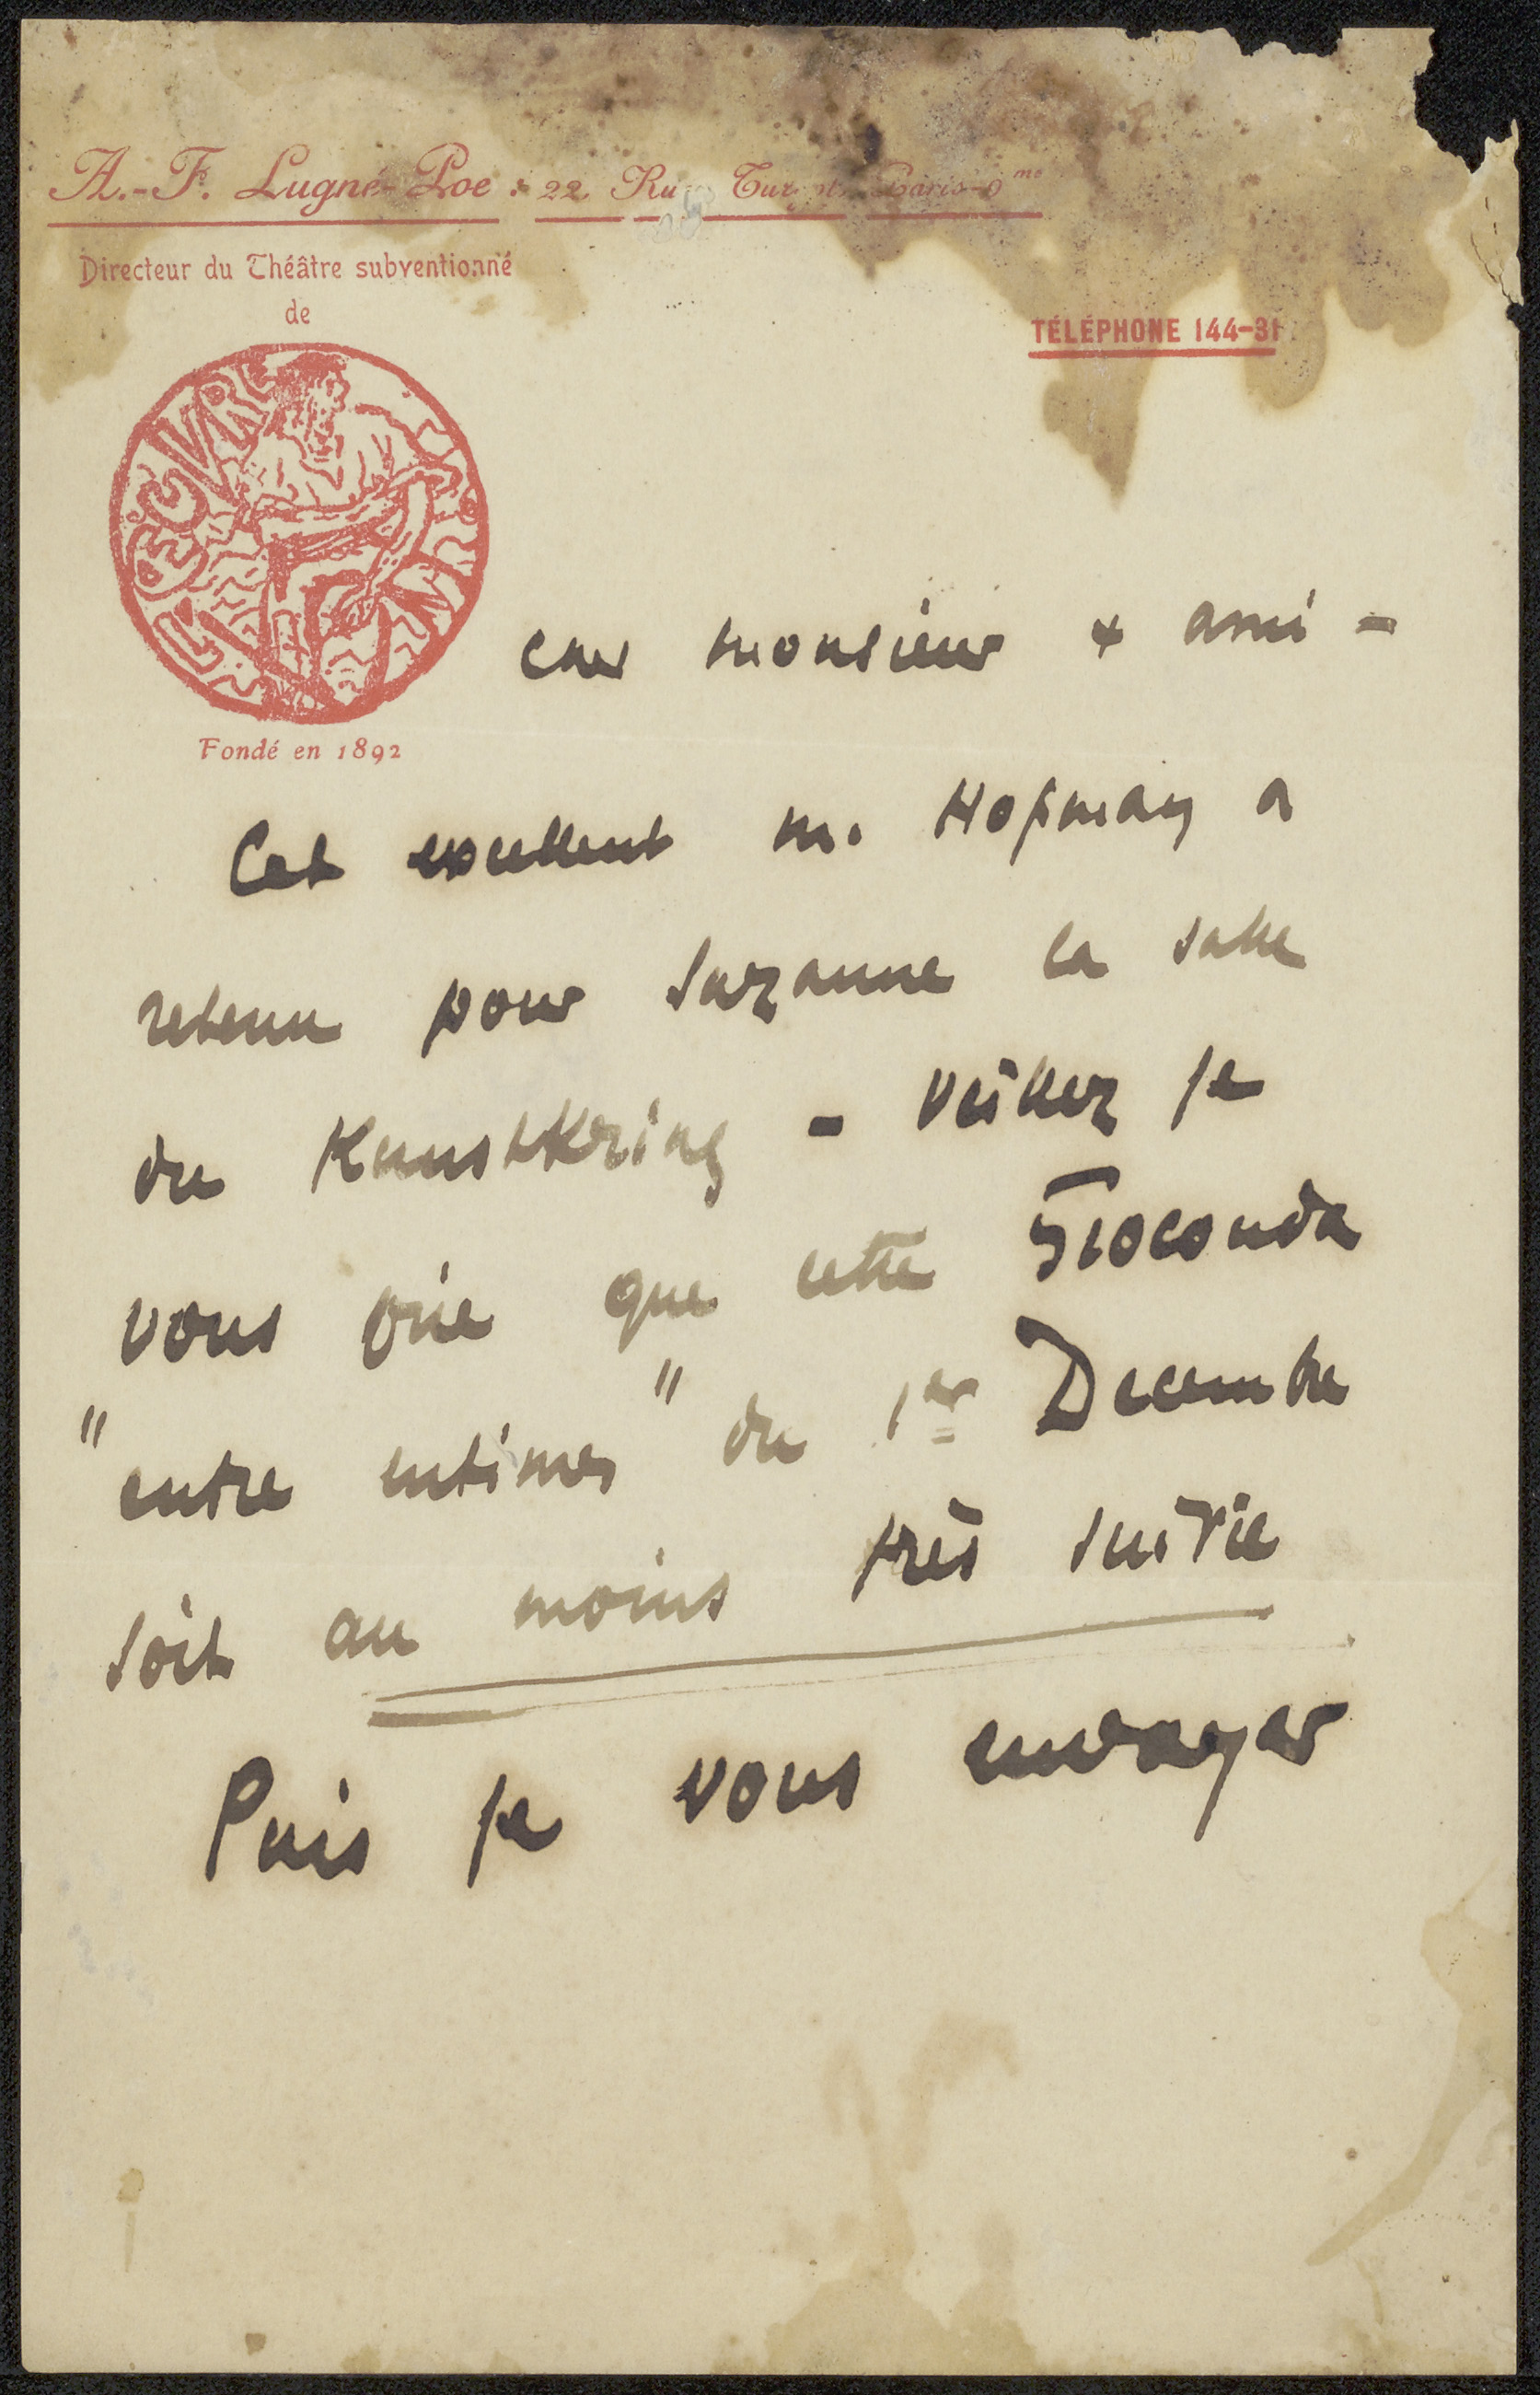 A.-F. Lugné-Poe : 22, Rue Turgot, Paris-9me
Directeur du Théâtre subventionné
de
TÉLÉPHONE 144-31
L'ŒUVRE
Fondé en 1892
Cher monsieur & ami -
Cet excellent M. Hofman a
retenu pour Suzanne la salle
du Kunstkring - Veillez je
vous prie que cette Gioconda
"entre intimes" du 1er Decembre
soit au moins très suivie
Puis je vous envoyer